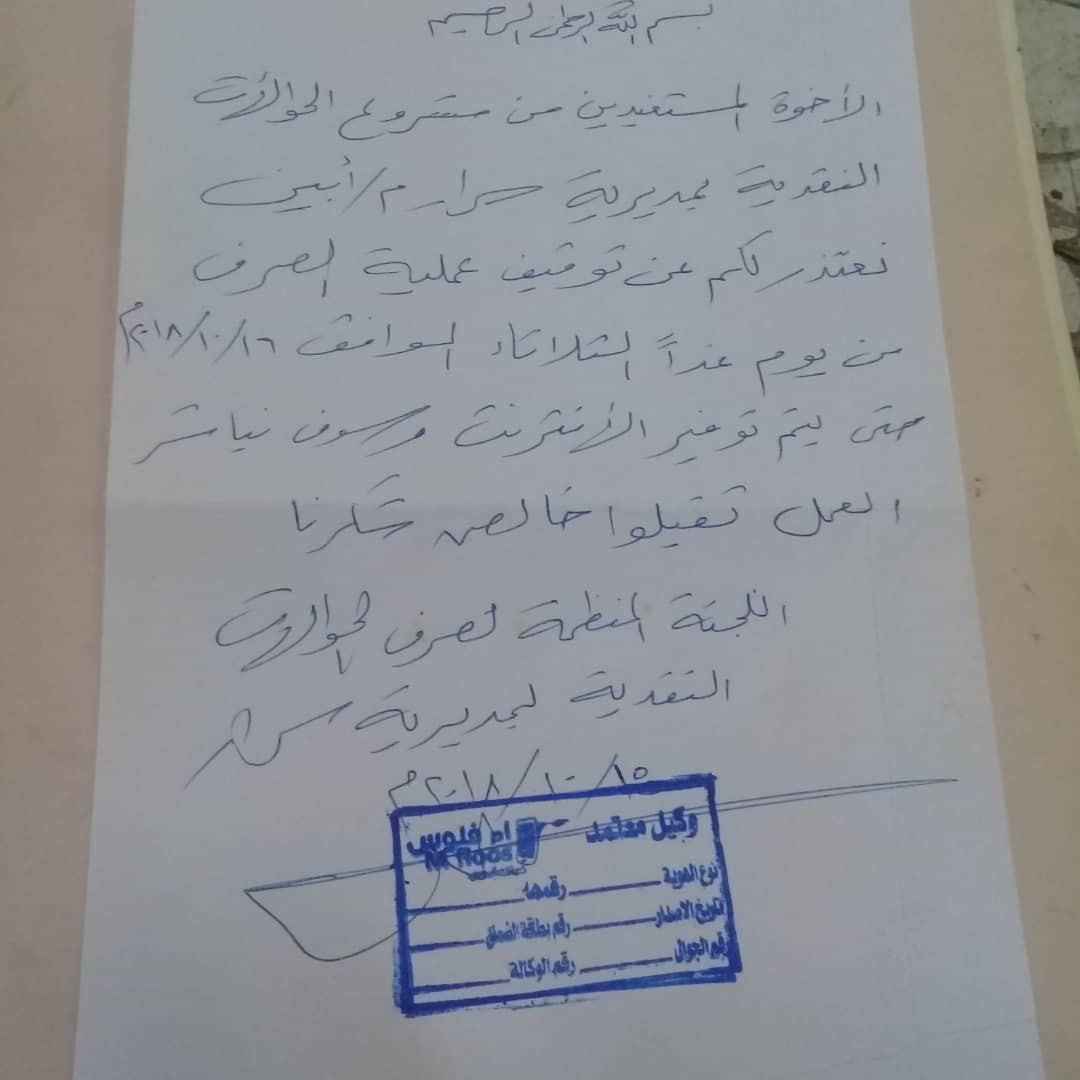 بسم الله الرحمن الرحيم
الأخوة المستفيدين من مشروع الحوالات
النقدية بمديرية سرار م/أبين
نعتذر لكم عن توقيف عملية الصرف
من يوم غداً الثلاثاء الموافق ١٦/١٠/٢٠١٨م
حتى يتم توفير الأنترنت وسوف نباشر
العمل تقبلوا خالص شكرنا
اللجنة المنظمة لصرف الحوالات
النقدية لمديرية سرار
١٥/١٠/٢٠١٨م
وكيل معتمد ام فلوس
M floos
نوع الهوية رقمها
تاريخ الاصدار رقم بطاقة الضمان
رقم الجوال رقم الوكالة